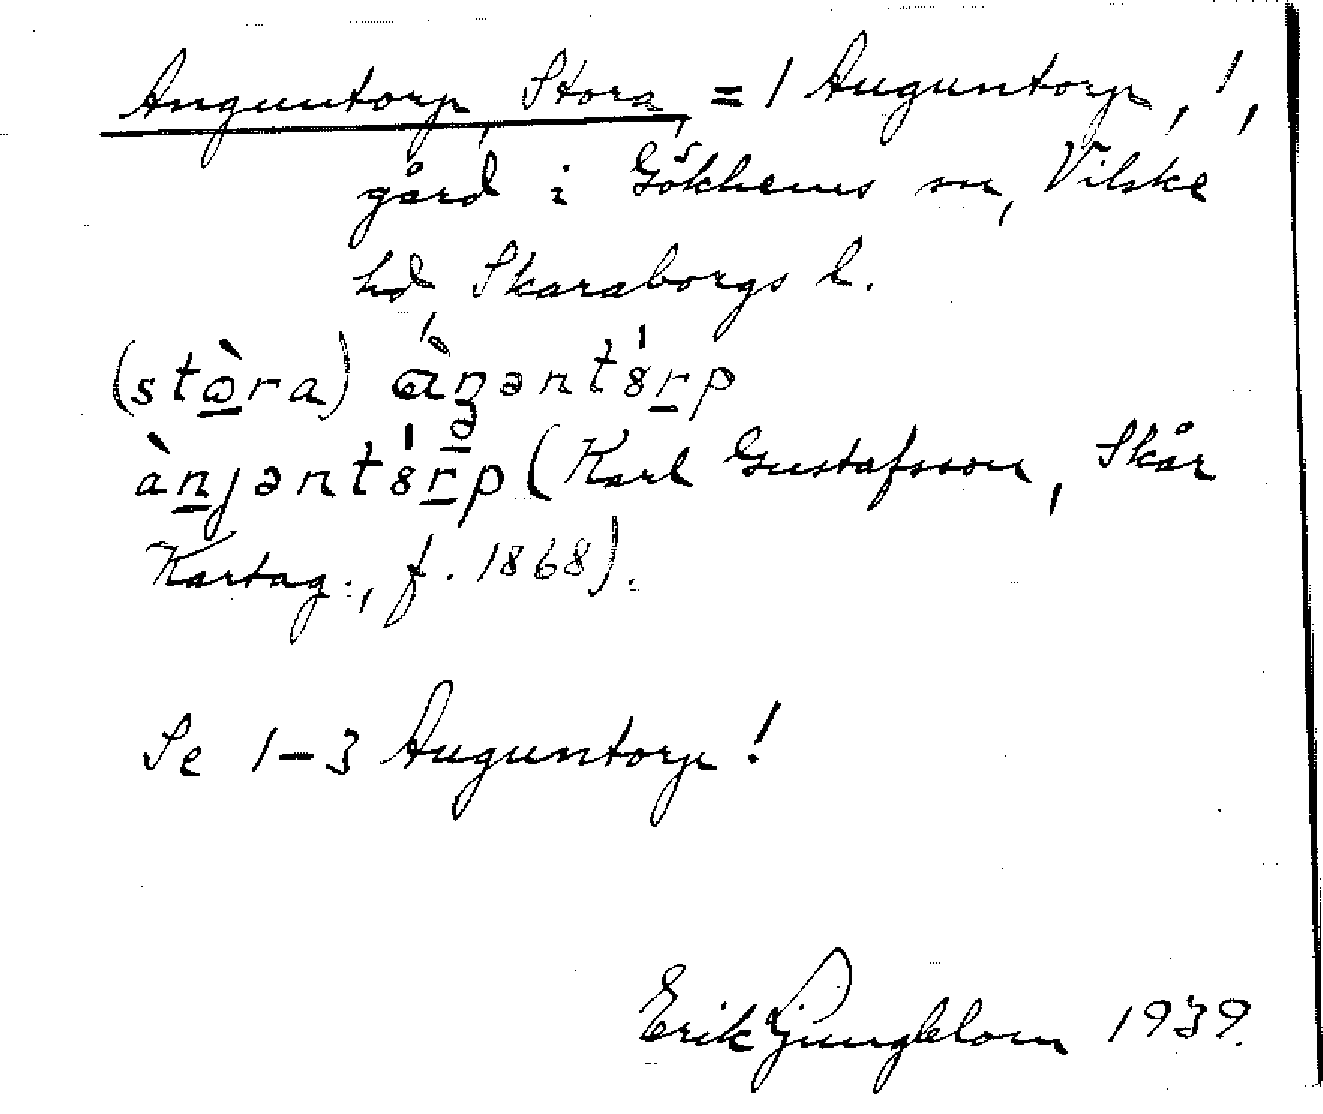 Anguntorp, Stora, = 1 Auguntorp, !,
gård i Gökhems sn, Vilske
hd Skaraborgs l.
(stòra) àŋəntórp
àŋjəntórp (Karl Gustafsson, Skår
Kartag., f. 1868).
Se 1-3 Auguntorp!
Erik Ljungblom 1939.